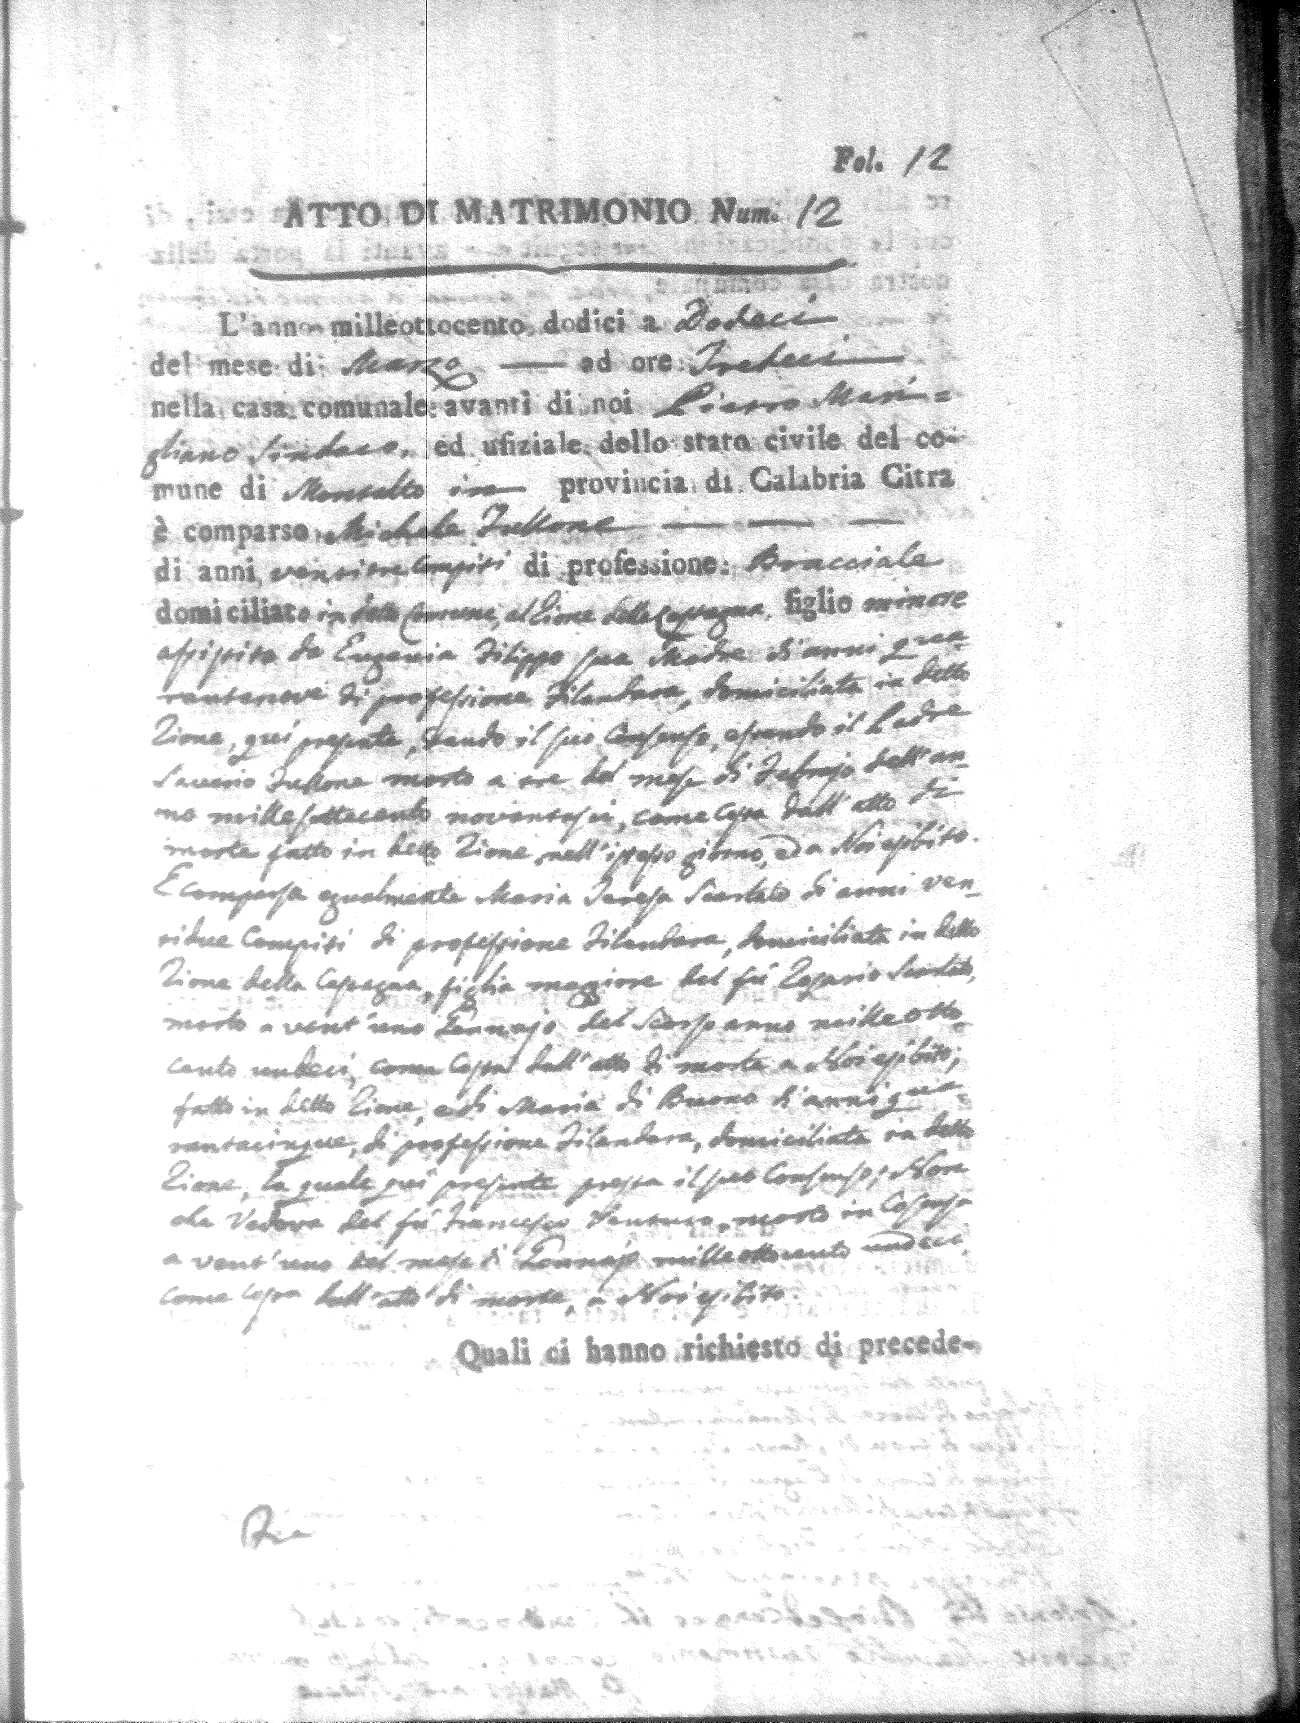 Fol. 12
ATTO DI MATRIMONIO Num. 12
L'anno milleottocento dodici a Dodeci
del mese di Marzo — ad ore Tredeci —
nella casa comunale avanti di noi Pietro Mari=
gliano Sindaco, ed ufiziale dello stato civile del co-
mune di Montalto in — provincia di Calabria Citra
è comparso Michele Trellone — — —
di anni ventitre compiti di professione Bracciale
domiciliato in detto Comune, al Rione della figlio minore
assistito da Eugenia Filippo sua Madre di anni qua=
rantanove di professione Filandara, domiciliata in detto
Rione, qui presente, dando il suo Consenso, essendo il Padre
Saverio Trellone morto a tre del mese di Febrajo dell'an-
no millesettecento novantasei, come costa dall'atto di
morte fatto in detto Rione nell'istesso giorno, ed a Noi esibito.
E comparsa egualmente Maria Teresa Scarlato di anni ven-
tidue Compiti di professione Filandara, domiciliata in detto
Rione della figlia maggiore del fu Rosario Scarlato,
morto a vent'uno Gennajo del Scorso anno milleotto
cento undeci, come costa dall'atto di morte a Noi esibito,
fatto in detto Rione, e di Maria di Buono di anni qua-
rantacinque, di professione Filandara, domiciliata in detto
Rione, la quale qui presente presta il suo Consenso; Non
che Vedova del fu Francesco morto in Cosenza
a vent'uno del mese di Gennajo milleottocento undeci,
come costa dall'atto di morte, a Noi esibito.
Quali ci hanno richiesto di precede-